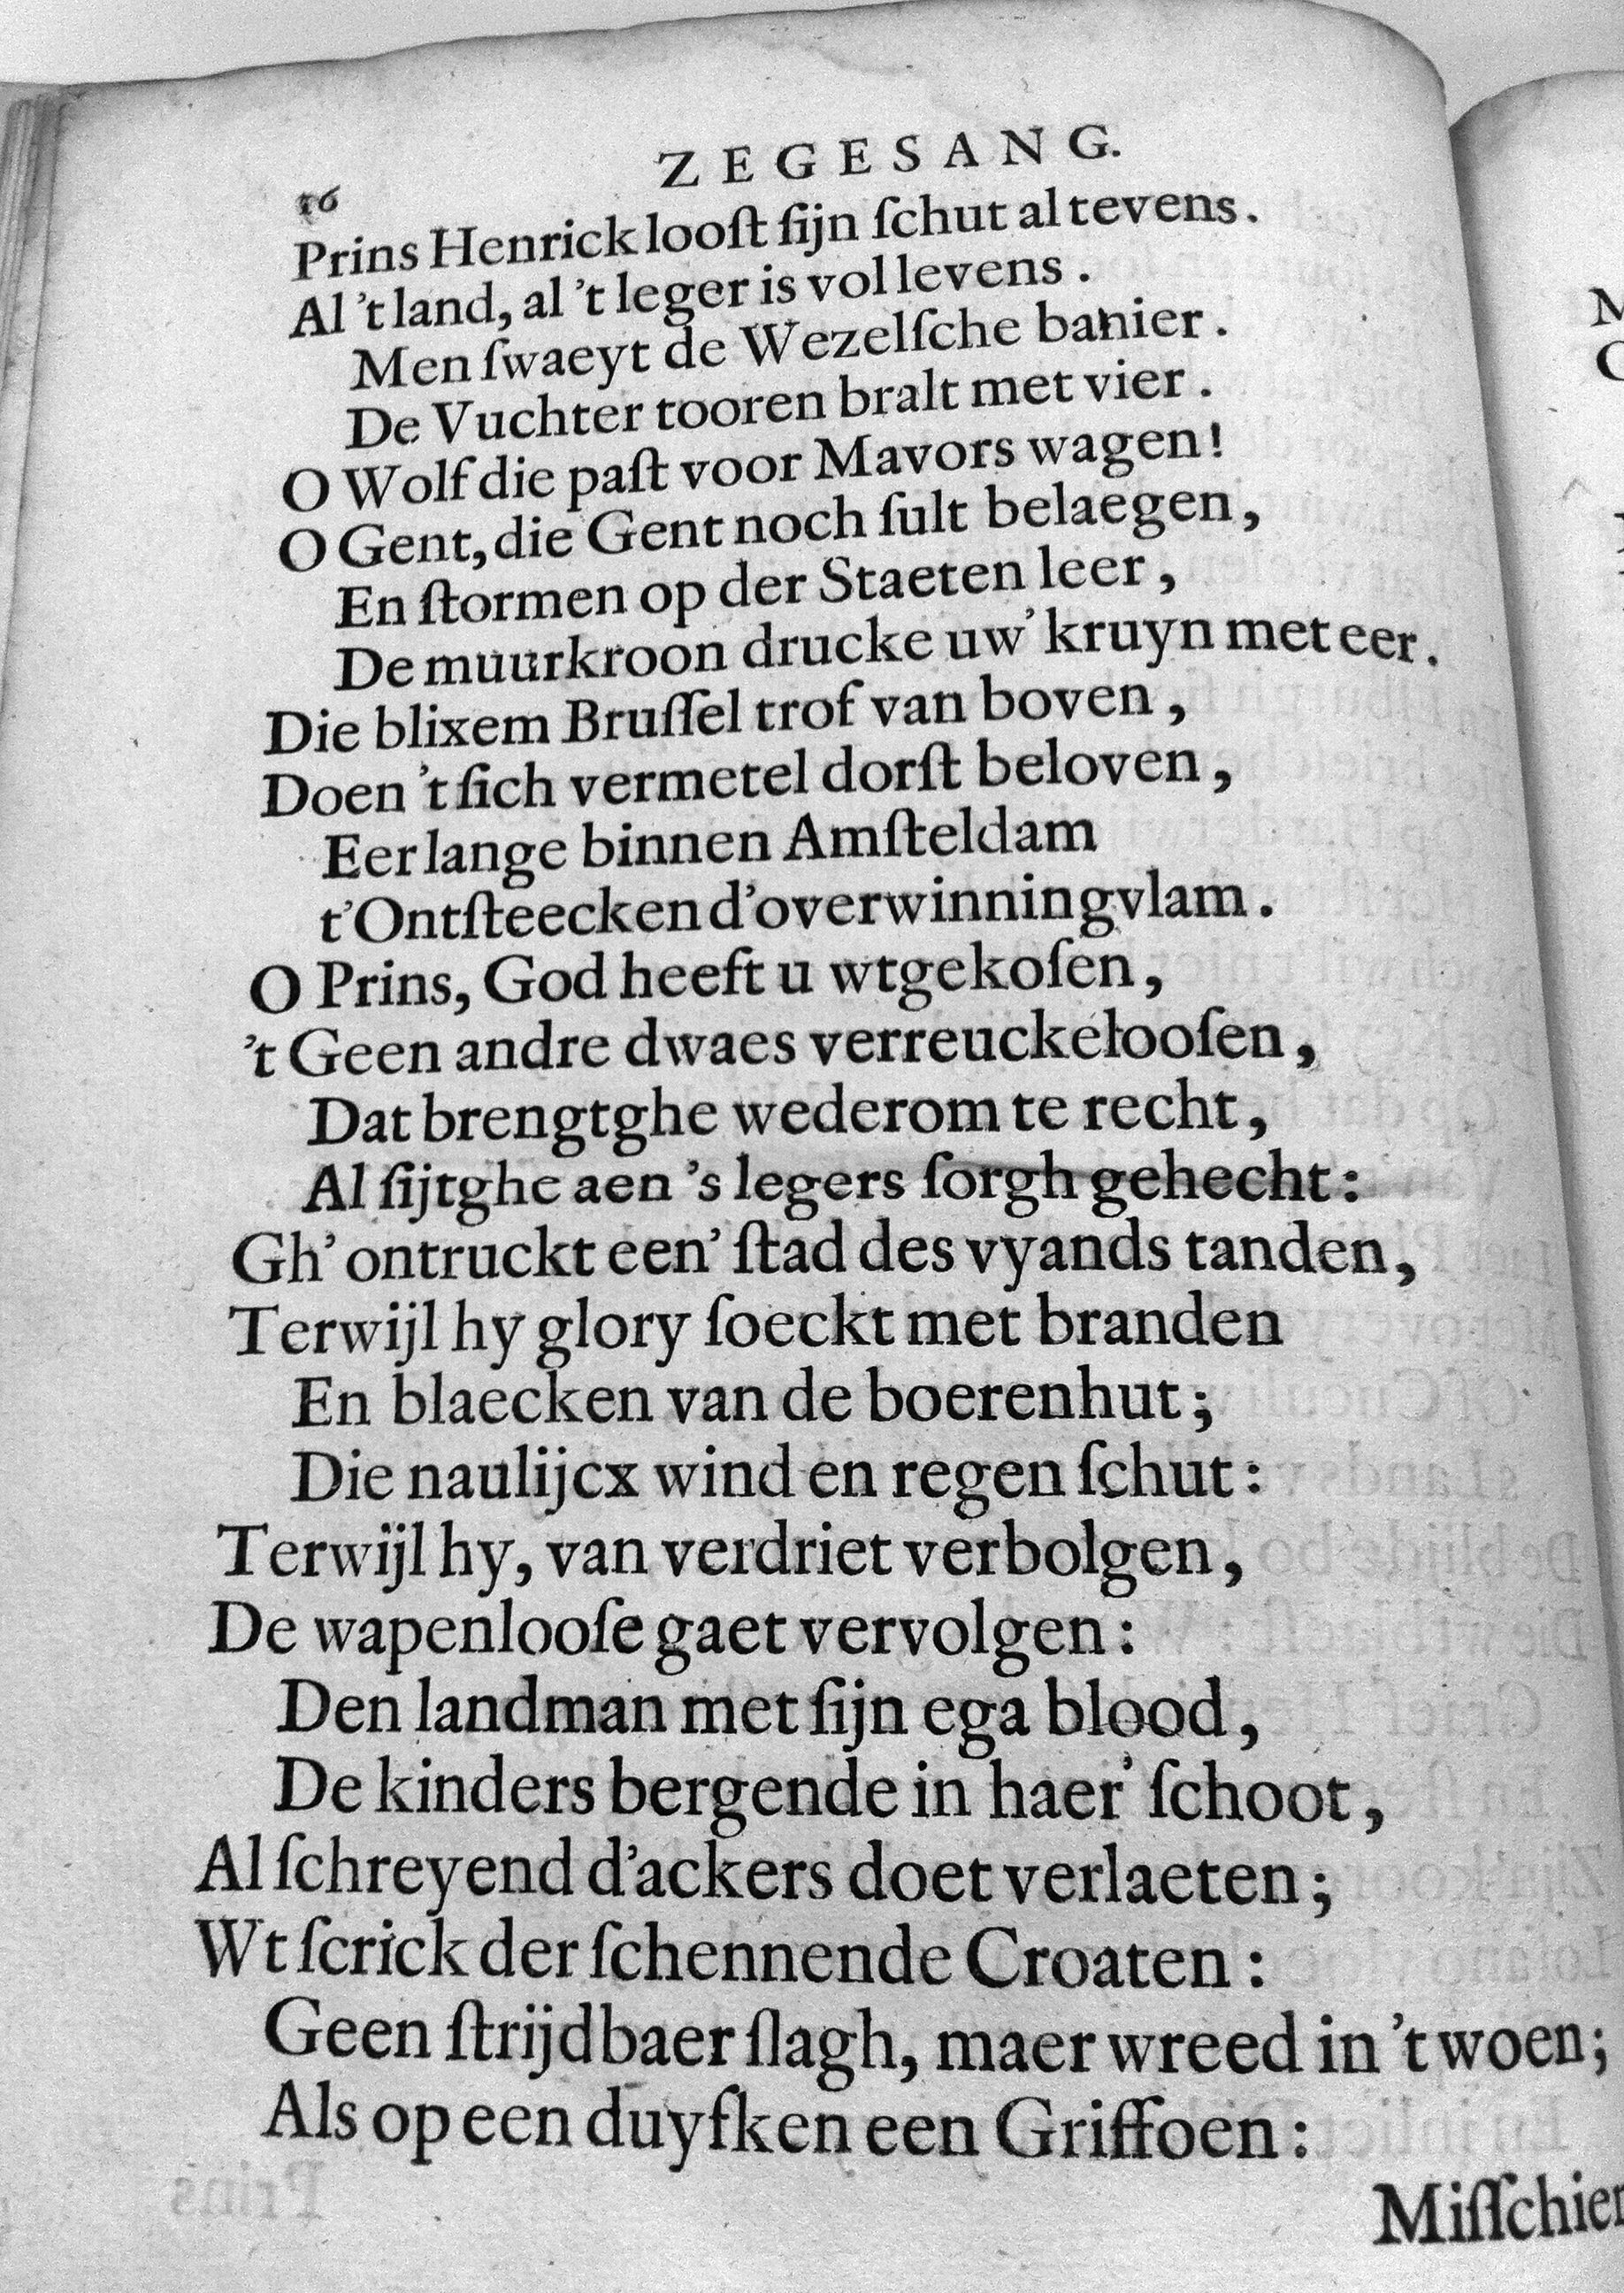 ZEGESANG.
16
Prins Henrick looſt ſijn ſchut al tevens.
Al 't land, al 't leger is vol levens.
Men ſwaeyt de Wezelſche banier.
De Vuchter tooren bralt met vier.
O Wolf die paſt voor Mavors wagen!
O Gent, die Gent noch ſult belaegen,
En ſtormen op der Staeten leer,
De muurkroon drucke uw' kruyn met eer.
Die blixem Bruſſel trof van boven,
Doen 't ſich vermetel dorſt beloven,
Eer lange binnen Amſteldam
t'Ontſteecken d'overwinningvlam.
O Prins, God heeft u wtgekoſen,
't Geen andre dwaes verreuckelooſen,
Dat brengtghe wederom te recht,
Al ſijtghe aen 's legers ſorgh gehecht:
Gh' ontruckt een' ſtad des vyands tanden,
Terwijl hy glory ſoeckt met branden
En blaecken van de boerenhut;
Die naulijcx wind en regen ſchut:
Terwijl hy, van verdriet verbolgen,
De wapenlooſe gaet vervolgen:
Den landman met ſijn ega blood,
De kinders bergende in haer' ſchoot,
Al ſchreyend d'ackers doet verlaeten;
Wt ſcrick der ſchennende Croaten:
Geen ſtrijdbaer ſlagh, maer wreed in 't woen;
Als op een duyfken een Griffoen: